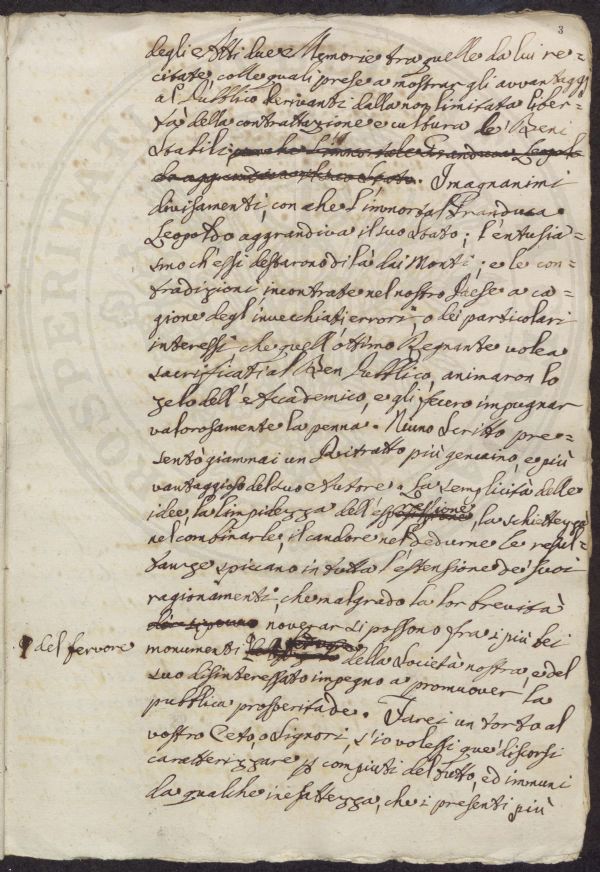 3
degli Atti due Memorie tra quelle da lui re=
citate, colle quali prese a mostrar gli avvantaggi
al Pubblico derivanti dalla non limitata liber=
tà della contrattazione e cultura de' Beni
Stabili perche l'immortale Granduca Leopol
do aggrandiva il suo Stato. I magnanimi
divisamenti, con che l'immortal Granduca
Leopoldo aggrandiva il suo Stato; l'entusia=
smo ch'essi destarono di là dai Monti; e le con=
tradizioni incontrate nel nostro Paese a ca=
gione degl'invecchiati errori, o dei particolari
interessi che quell'ottimo Regnante volea
sacrificati al Ben Pubblico, animaron lo
zelo dell'Accademico, e gli fecero impugnar
valorosamente la penna. Niuno Scritto pre=
sentò giammai un Ritratto più genuino, e più
vantaggioso del suo Autore. La semplicità delle
idee, la limpidezza dell'espressione, la schiettezza
nel combinarle, il candore nel dedurne le resul=
tanze spiccano in tutta l'estensione de' suoi
ragionamenti, che malgrado la lor brevità
noverar si possono fra i più bei
monumenti della Società nostra, e del
del fervore
suo disinteressato impegno a promuover la
pubblica prosperitade. Farei un torto al
vostro Ceto, o Signori, s'io volessi que' discorsi
caratterizzare p compiuti del tutto, ed immuni
da qualche inesattezza, che i presenti più